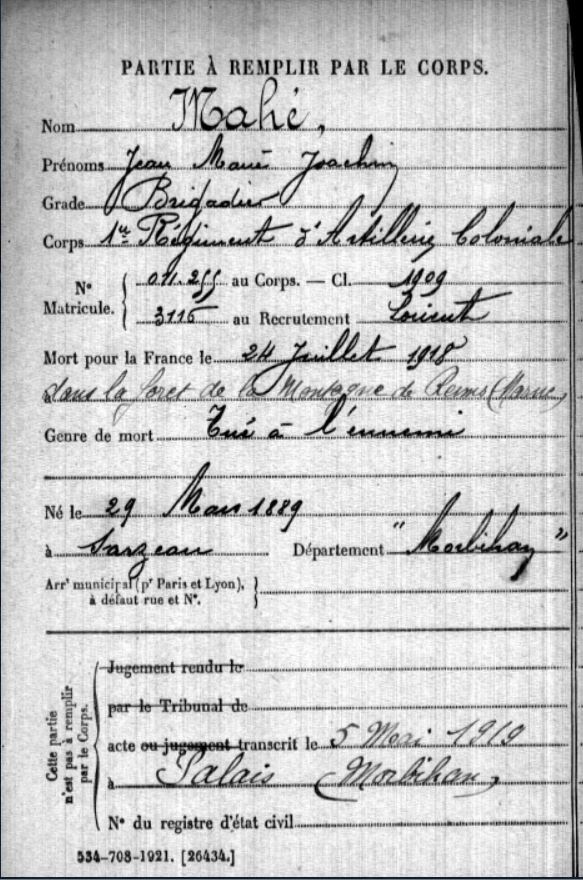 PARTIE À REMPLIR PAR LE CORPS.
Nom Mahé,
Prénoms Jean Marie Joachim
Grade Brigadier
Corps 1er Régiment d'Artillerie Coloniale
N° Matricule. { 011.255 au Corps. — Cl. 1909
3116 au Recrutement Lorient
Mort pour la France le 24 Juillet 1918
à dans la foret de la Montagne de Reims (Marne)
Genre de mort Tué à l'ennemi
Né le 29 Mars 1889
à Sarzeau Département "Morbihan"
Arrt municipal (pr Paris et Lyon), }
à défaut rue et N°.
Cette partie n'est pas à remplir par le Corps.
Jugement rendu le
par le Tribunal de
acte ou jugement transcrit le 5 Mai 1919
à Palais (Morbihan)
N° du registre d'état civil
534-708-1921. [26434.]